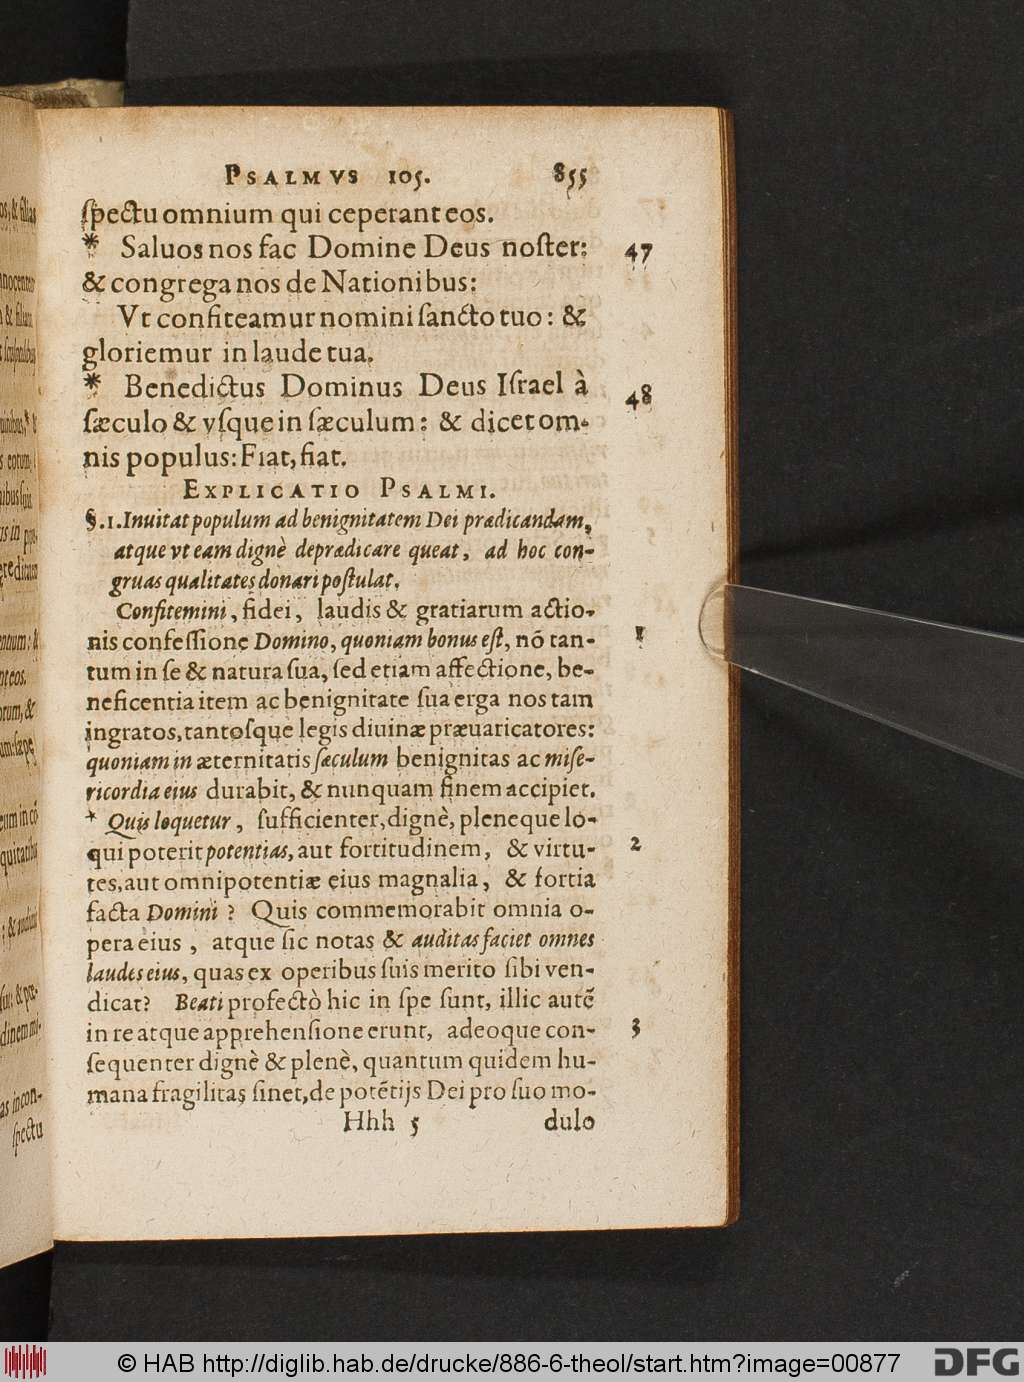 PSALMVS 105. 855
ſpectu omnium qui ceperant eos.
* Saluos nos fac Domine Deus noſter: 47
& congrega nos de Nationibus:
Vt confiteamur nomini ſancto tuo: &
gloriemur in laude tua.
* Benedictus Dominus Deus Iſrael à 48
ſæculo & vſque in ſæculum: & dicet om-
nis populus: Fiat, fiat.
EXPLICATIO PSALMI.
§.1. Inuitat populum ad benignitatem Dei prædicandam,
atque vt eam dignè deprædicare queat, ad hoc con-
gruas qualitates donari poſtulat.
Confitemini, fidei, laudis & gratiarum actio-
nis confeſſione Domino, quoniam bonus eſt, nō tan- 1
tum in ſe & natura ſua, ſed etiam affectione, be-
neficentia item ac benignitate ſua erga nos tam
ingratos, tantoſque legis diuinæ præuaricatores:
quoniam in æternitatis ſæculum benignitas ac miſe-
ricordia eius durabit, & nunquam finem accipiet.
* Quis loquetur, ſufficienter, dignè, pleneque lo-
qui poterit potentias, aut fortitudinem, & virtu- 2
tes, aut omnipotentiæ eius magnalia, & fortia
facta Domini? Quis commemorabit omnia o-
pera eius, atque ſic notas & auditas faciet omnes
laudes eius, quas ex operibus ſuis merito ſibi ven-
dicat? Beati profectò hic in ſpe ſunt, illic autē
in re atque apprehenſione erunt, adeoque con- 3
ſequenter dignè & plenè, quantum quidem hu-
mana fragilitas ſinet, de potētijs Dei pro ſuo mo-
Hhh 5 dulo
© HAB http://diglib.hab.de/drucke/886-6-theol/start.htm?image=00877 DFG